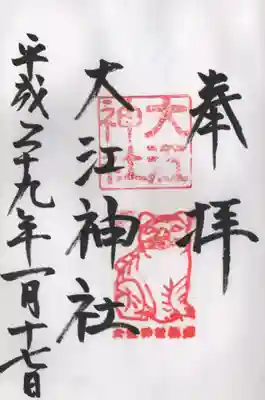 奉拝
大江神社
平成二十九年一月十七日
大江
神社